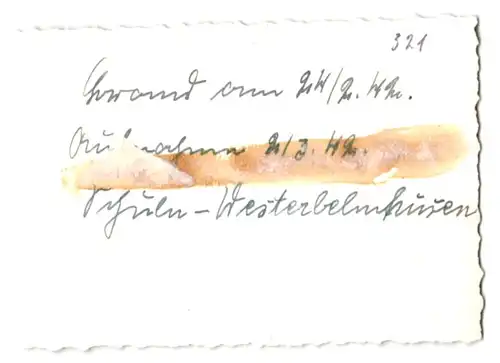 321
Brand am 24/2. 42.
Aufnahme 2/3. 42.
Schuln - Westerbelmhusen